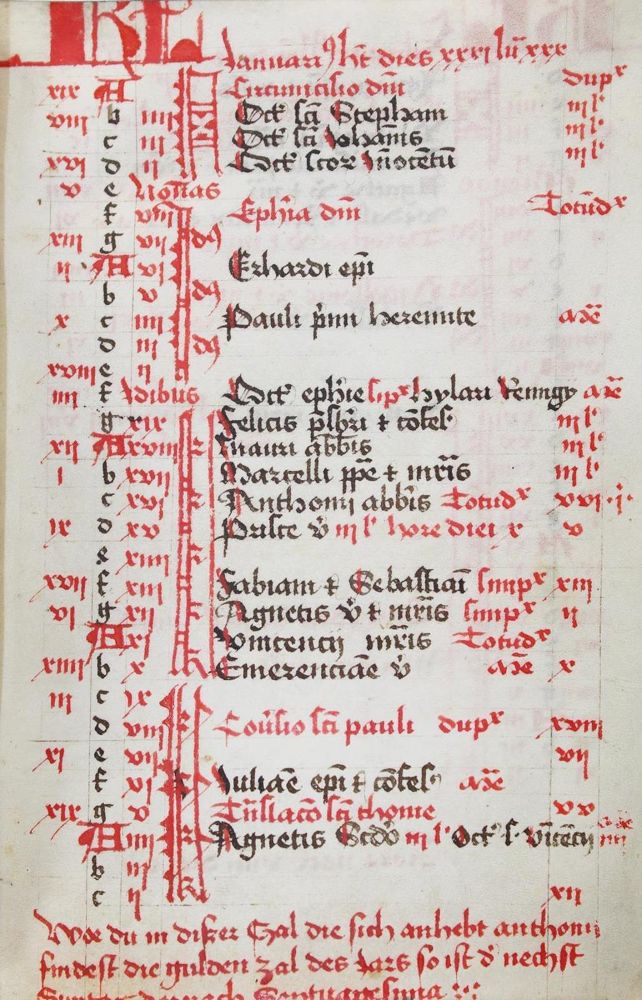 KL Januari⁹ ht dies xxxi lu xxx
xix A Circumcisio dni dupˣ
viii b iiii Oct sci Stephani iii lᶜ
c iii Oct sci Johanis iii lᶜ
xvi d ii Oct scor Inocetu iii lᶜ
v e Nonas
f viii Ephia dni Totudˣ
xiii g vii
ii A vi Erhardi epi
b v
x c iiii Pauli pimi heremite
d iii
xviii e ii
iiii f Idibus Oct ephie hylari
g xix Felicis pbri & cofes iii lᶜ
xii A xviii Mauri abbis iii lᶜ
i b xvii Marcelli ppe & mris iii lᶜ
c xvi Anthonij abbis Totudˣ xvi
ix d xv Prisce v iii lᶜ hore diei x v
e xiiii
xvii f xiii Fabiani & Sebastiani simpˣ xiii
vi g xii Agnetis v & mris simpˣ ii
A xi Vincencij mris Totudˣ
xiiii b x Emerenciae v x
iii c ix
d viii Couersio sci pauli dupˣ xviii
xi e vii vii
f vi Juliae epi & cofes
xix g v Tnslaco sci thome xv
A iiii Agnetis Scdo iii lᶜ Oct s Vicecij
b iii
c ii xii
Woe du in diser Zal die sich anhebt anthonij
findest die gulden zal des Jars so ist d nechst
Suntag darnach Septuagesima